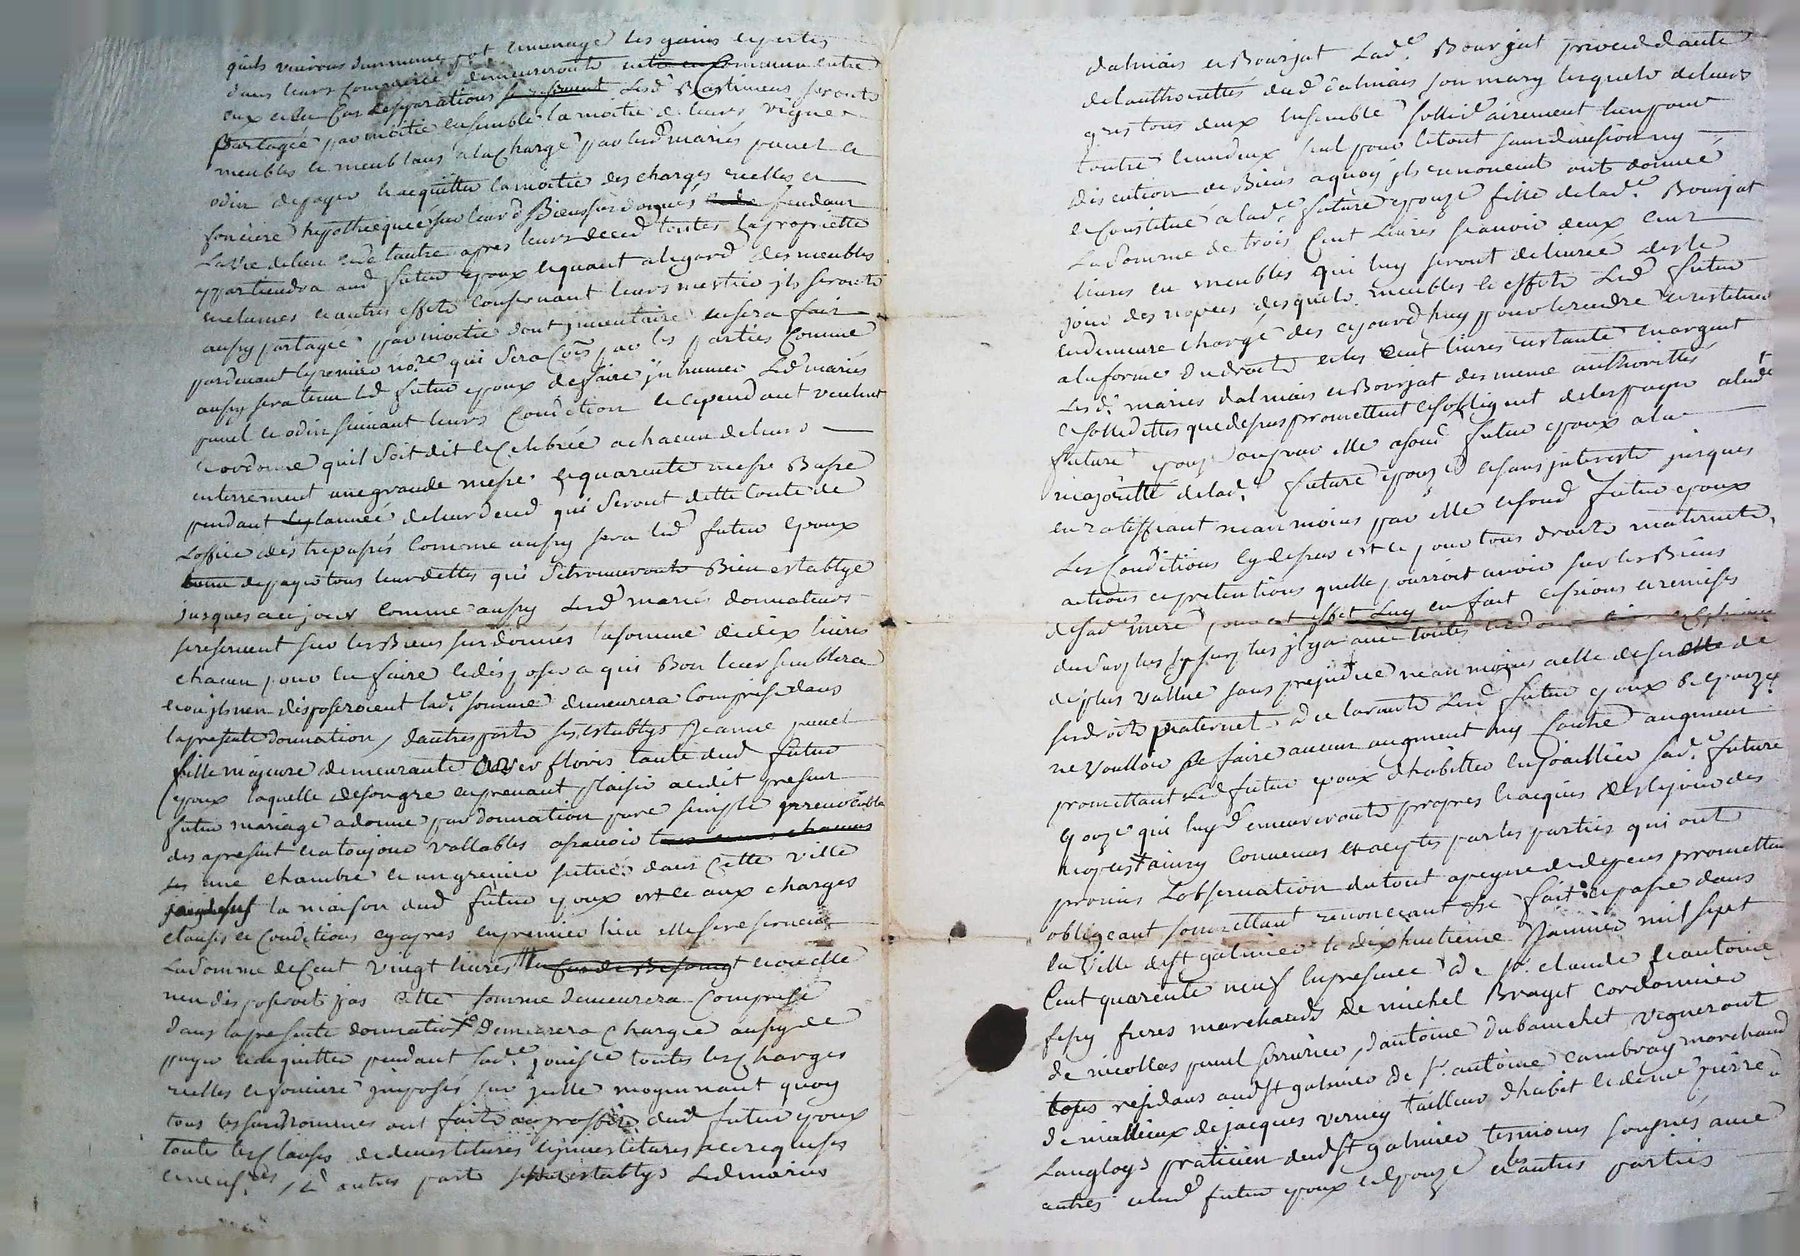 quils vivrons dun meme pot et menage les gains et pertes
dans leurs commerce demeureronts en commun entre
eux et en cas de separations lesd Bastimens seronts
Partagée par moitie ensemble la moitie de leurs vigne
meubles et meublans a la charge par lesd mariés punel et
odin de payer et acquitter la moitie des charges reelles et
fonciere hypothecquée sur leurd Biens sur donnés pendant
La vie de lun et de lautre apres leurs deced toutes la proprietté
appartiendra aud futur epoux et quant a legard des meubles
enclumes et autres effets consernant leurs mestier ils seronts
aussy partagée par moitie dont inventaire en sera fait
pardevant le premier no.re qui sera par les parties comme
aussy sera tenu led futur epoux de faire inhumer Lesd mariés
punel et odin suivant leurs condition et cependant veulent
et ordonne quil soit dit et celebrée a chacun de leurs
enterrement une grande messe et quarente messe Basse
pendant lannée de leur deced qui seront dette toute de
Loffice des trepassés comme aussy sera led futur epoux
de payer tous leur dettes qui se trouveronts Bien establye
jusques a ce jour comme aussy Lesd mariés donnateurs
se reservent sur les Biens sur donnés la somme de dix livres
chacun pour en faire et disposer a qui Bon leur semblera
et ou ils nen disposeroient lad.e somme demeurera comprise dans
la presente donnation, dautre parts sest establys Jeanne punel
fille majeure demeurante tante dud futur
Epoux laquelle de son gre en prenant plaisir audit present
futur mariage a donné par donnation pure simple irrevocable
des a present et a toujour vallables a scavoir
une chambre et un grenier situés dans cette ville
la maison dud futur epoux et ce aux charges
clauses et conditions cy apres en premier lieu elle se reserve
La somme de cent vingt livres et ou elle
nen disposeroit pas cette somme demeurera comprise
dans la presente donnation Demeurera chargée aussy de
payer et acquitter pendant sad.e jouisce toutes les charges
reelles et fonciere imposés sur icelle moyennant quoy
tous les surdnommés ont fait au proffit dud futur epoux
toutes les clauses de devestitures et investitures ac requises
et dautres part se sont establys Lesd mariés
dalmais et Bourjat Lad.e Bourjat procedante
de lauthorittés dud dalmais son mary lesquels de leurs
gres tous deux ensemble sollidairement lun pour
lautre et un deux seul pour le tout sans division ny
discution de Biens a quoy ils renoncent ont donnée
et constitué a lad.e future epouze fille de lad.e Bourjat
La somme de trois cent livres scavoir deux cent
livres en meubles qui luy seront delivrée des le
jour des nopces desquels meubles et effets Led futur
en demeure chargé des cejourdhuy pour le rendre et restituer
a la forme du droits et les cent livres restante en argent
Lesd. mariés dalmais et Bourjat des meme authorittés
et sollidittes que dessus promettent et sobligent de les payer a lad.e
future epouze ou pour elle a sond futur epoux a la
majoritté de lad.e future epouze et sans interests jusques
en ratiffiant neanmoins par elle et sond futur epoux
Les conditions cy dessus et ce pour tous droits maternels,
actions et pretentions quelle pourroit avoir sur les Biens
de sad.e mere pour cet effet luy en fait cessions et remises
du surplus sy surplus il y a avec toutes
de plus vallue sans prejudice neanmoins a elle de ses
ses droits paternel. a la Led futur epoux et epouze
ne voulloir se faire aucun augment ny contre augment
promettant Led futur epoux dhabiller en joaillier sad.e future
Epouze qui luy demeureronts propres et acquis des le jour des
nopces ainsy convenus et acceptés par les parties qui ont
promis lobservation du tout a peyne de depens promettant
obligeant soumettant renonceant fait et passé dans
la ville de st galmier le dix huitieme Janvier mil sept
cent quarente neuf en presence de s.r claude et antoine
fessy freres marchands de michel Brayet cordonnier
de nicollas punel serrurier, dantoine dubanchet vigneront
tous residans aud st galmier de s.r antoine cambray marchand
de jacques verney tailleur dhabit et de me pierre
Langloys praticien dud st galmier temoins soussignés avec
autres led futur epoux et epouze et les autres parties